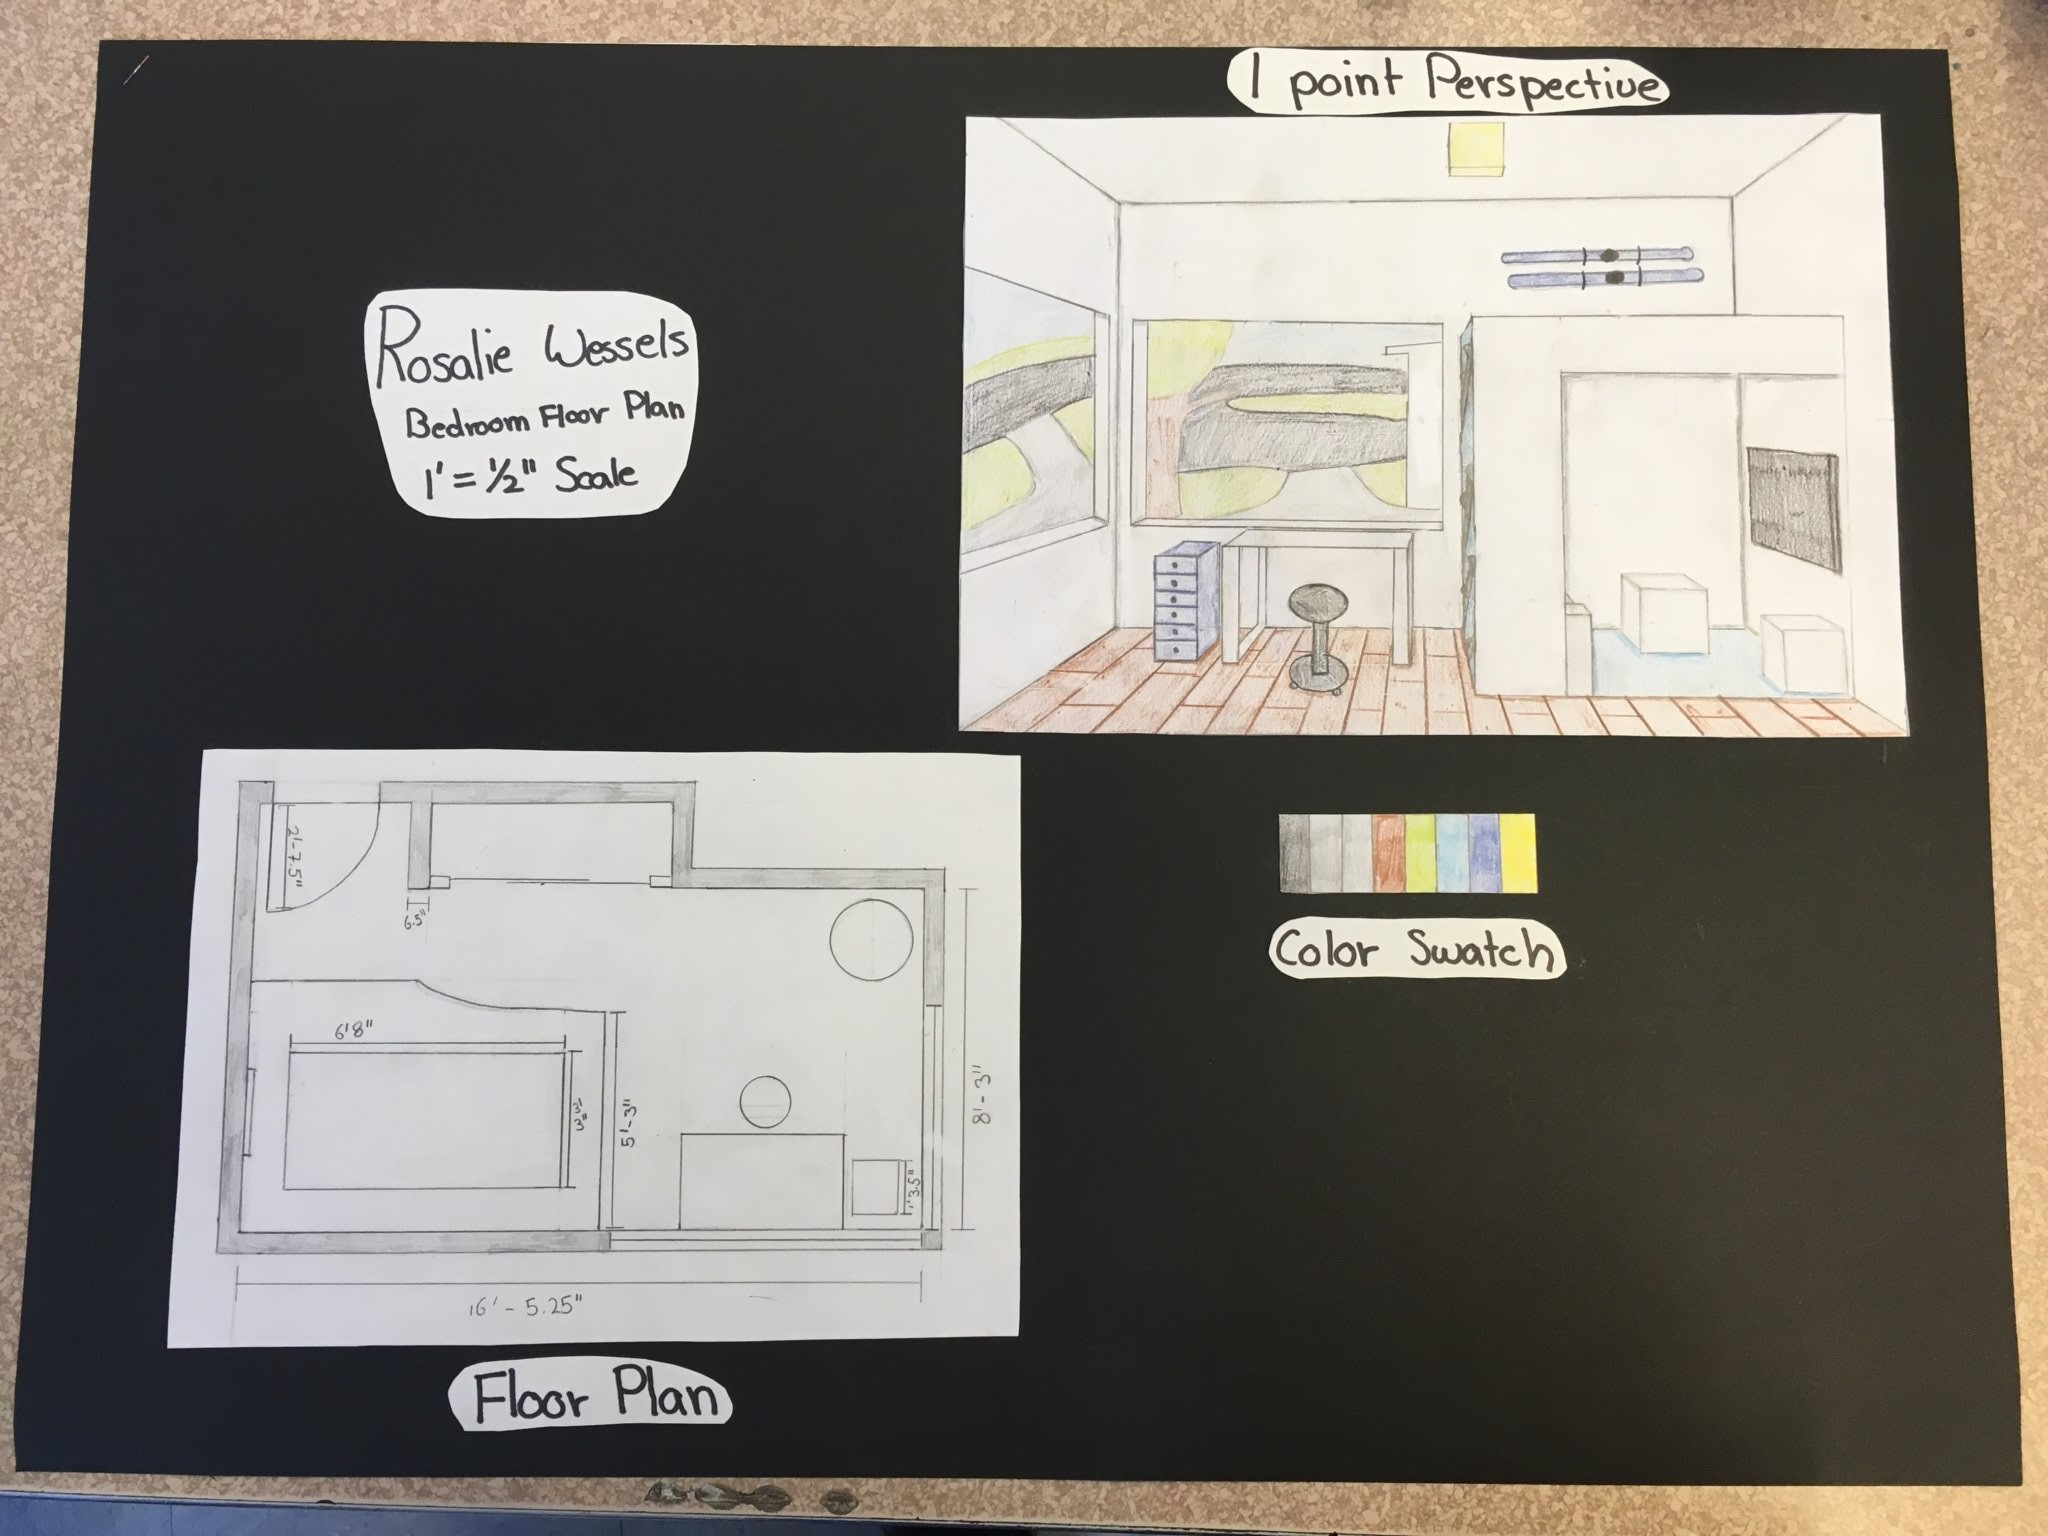 1 point Perspective
Rosalie Wessels
Bedroom Floor Plan
1' = 1/2" Scale
2'-7.5"
6.5"
6'8"
5'-3"
8'-3"
1'3.5"
16'-5.25"
Color Swatch
Floor Plan